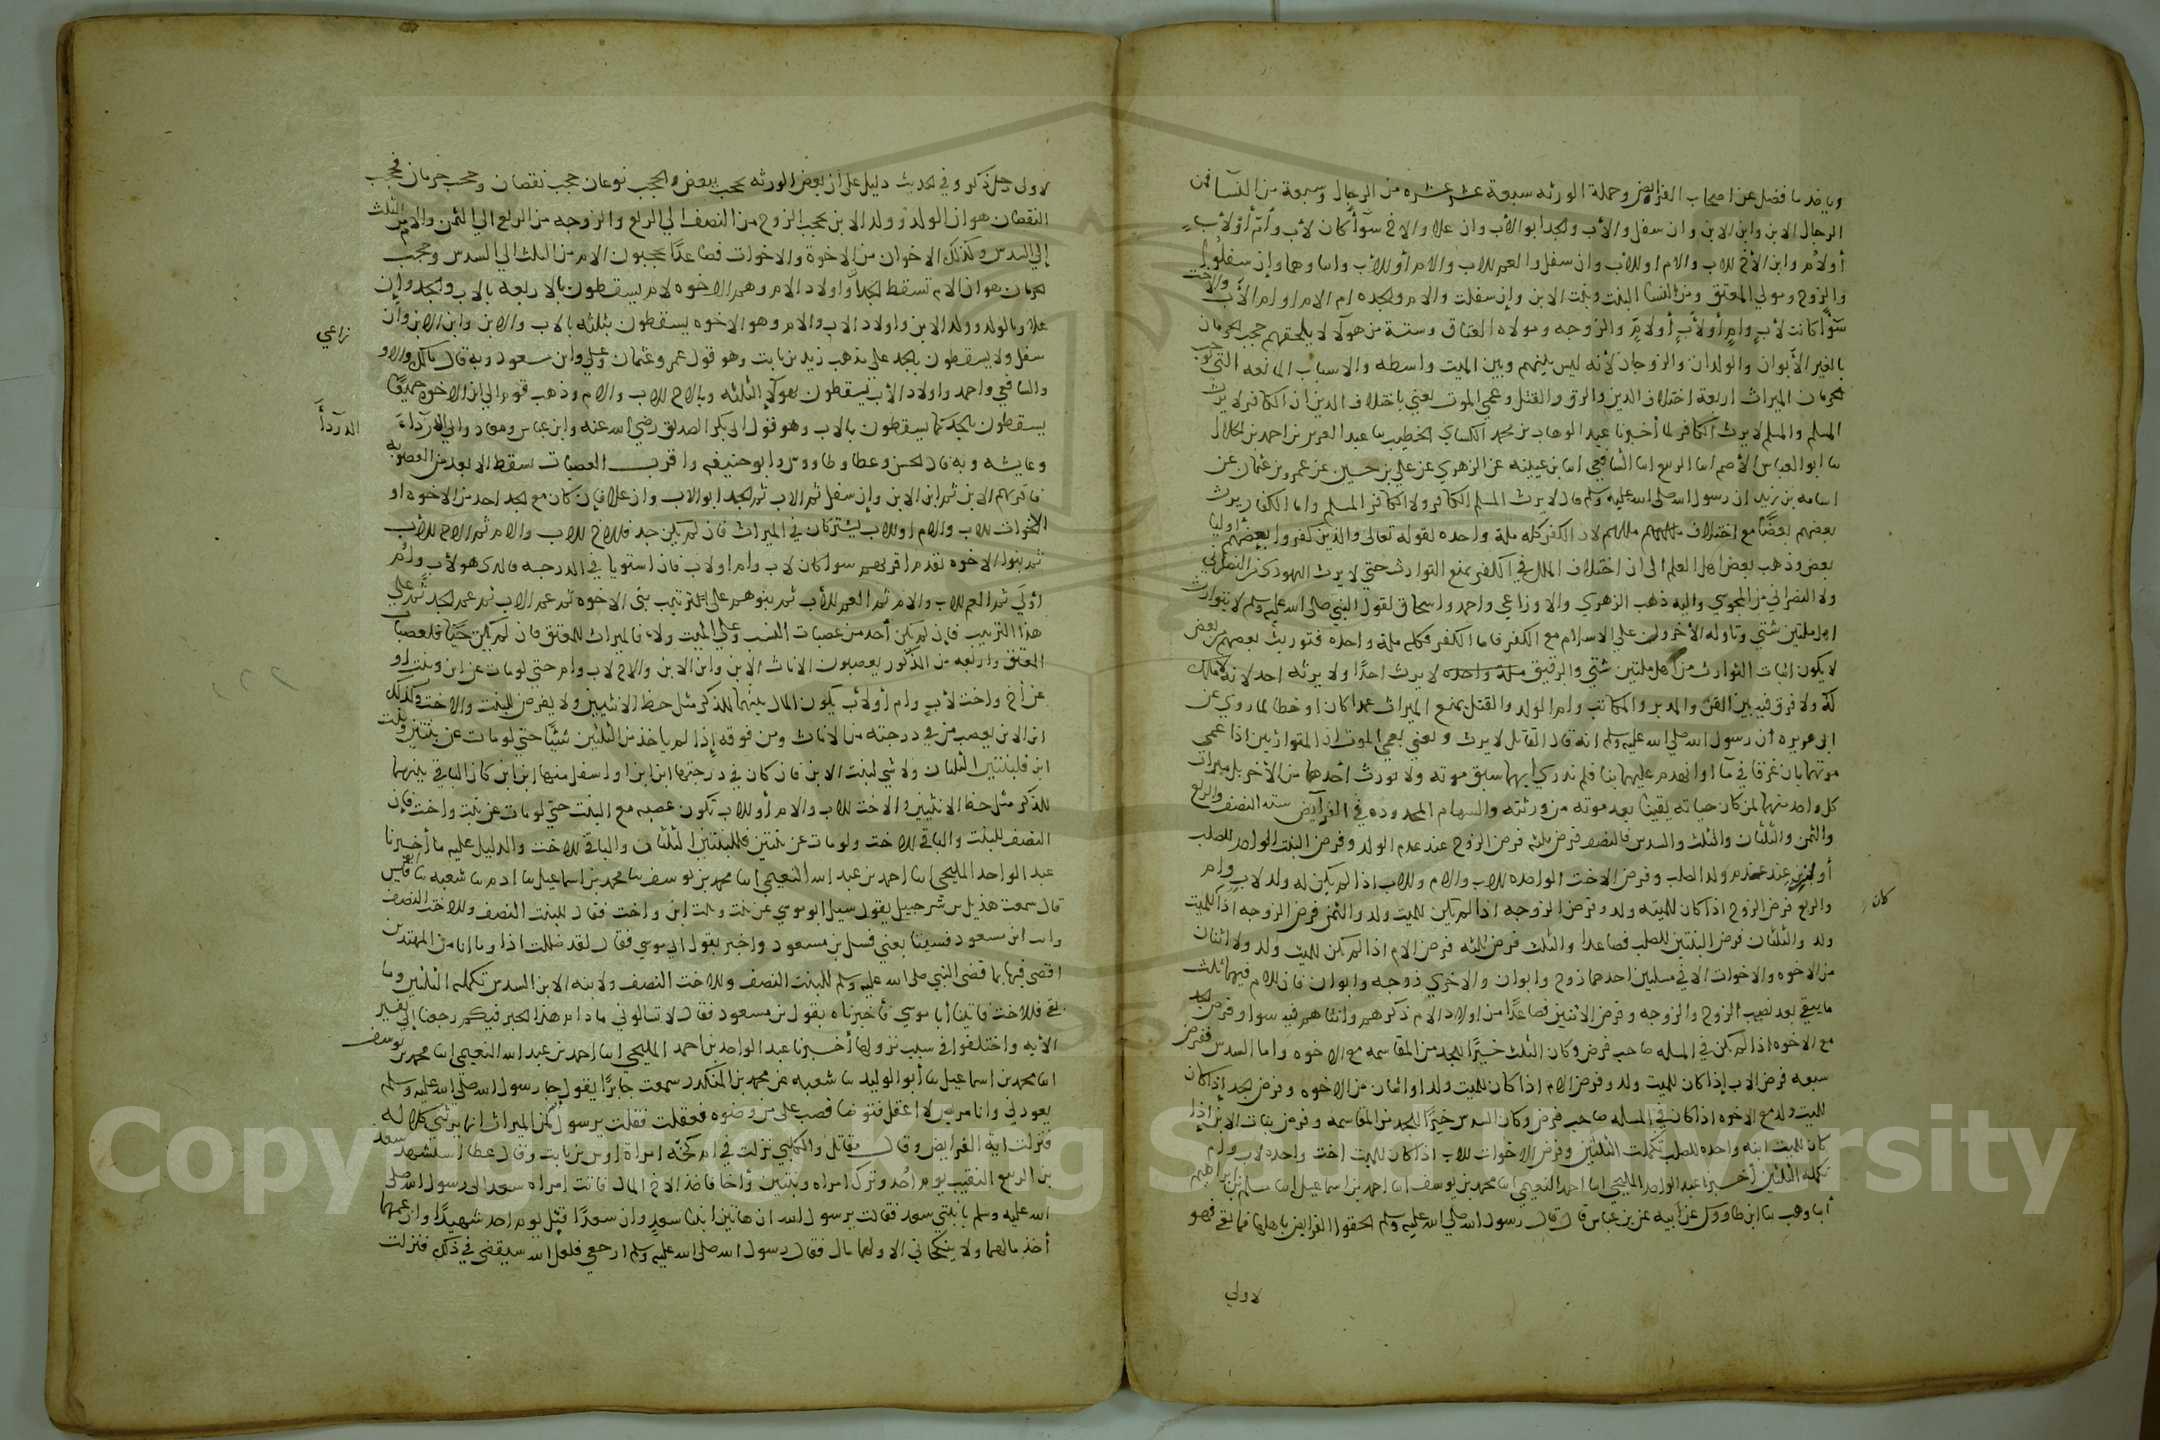 وياخذ ما فضل عن اصحاب الفرايض وجملة الورثه سبعة عشر عشره من الرجال وسبعة من النسا فمن
الرجال الابن وابن الابن وان سفل والأب والجد ابو الأب وان علا والاخ سوآ كان لأب وأم أو لأب
أو لأم وابن الأخ للاب والام او للأب وان سفل والعم للاب والام أو للأب وابناوهما وإن سفلوا
والزوج ومولي المعتق ومن النسا البنت وبنت الابن وإن سفلت والام والجده ام الام او ام الأب والاخت
سوآ كانت لأب وأم أو لأب أو لأم والزوجه ومولاه العتاق وستة من هولآ لا يلحقهم حجب الحرمان
بالغير الأبوان والولدان والزوجان لأنه ليس بينهم وبين الميت واسطه والاسباب المانعه التي توجب
حرمان الميراث اربعة اختلاف الدين والرق والقتل وعمي الموت يعني باختلاف الدين ان الكافر لا يرث
المسلم والمسلم لا يرث الكافر لما أخبرنا عبد الوهاب بن محمد الكسائي الخطيب سا عبد العزيز بن احمد بن الخلال
سا ابو العباس الأصم اسا الربيع اسا الشافعي اسا بن عيينه عن الزهري عن علي بن حسين عن عمرو بن عثمان عن
اسامه بن زيد ان رسول الله صلى الله عليه وسلم قال لا يرث المسلم الكافر ولا الكافر المسلم واما الكفار يرث
بعضهم بعضًا مع اختلاف مللهم لان الكفر كله ملة واحده لقوله تعالى والذين كفروا بعضهم اوليا
بعض وذهب بعض اهل العلم الى ان اختلاف الملل في الكفر يمنع التوارث حتي لا يرث اليهودي من النصراني
ولا النصراني من المجوسي واليه ذهب الزهري والاوزاعي واحمد واسحاق لقول النبي صلى الله عليه وسلم لا يتوارث
اهل ملتين شتي وتاوله الأخرون علي الاسلام مع الكفر فاما الكفر فكله ملة واحده فتوريث بعضهم من بعض
لا يكون اثبات التوارث من اهل ملتين شتي والرقيق ملة واحده لا يرث احدًا ولا يرثه احد لانه لا ملك
له ولا فرق فيه بين القن والمدبر والمكاتب وام الولد والقتل يمنع الميراث عمدا كان او خطا لما روي عن
ابي هريره أن رسول الله صلى الله عليه وسلم انه قال القاتل لا يرث ونعني بعمي الموت ان المتوارثين اذا عمي
موتهما بان غرقا في مآ او انهدم عليهما بنا فلم ندر أيهما سبق موته ولا يورث أحدهما من الأخر بل ميراث
كل واحد منهما لمن كان حياته يقينًا بعد موته من ورثته والسهام المحدوده في الفرآيض سته النصف والربع
والثمن والثلثان والثلث والسدس فالنصف فرض ثلثه فرض الزوج عند عدم الولد وفرض البنت الواحد للصلب
أو بنت ابن عند عدم ولد الصلب وفرض الاخت الواحده للاب والام وللاب اذا لم يكن له ولد لاب وام
والربع فرض الزوج اذا كان للميته ولد وفرض الزوجه اذا لم يكن للميت ولد والثمن فرض الزوجه اذا للميت
كان
ولد والثلثان فرض البنتين للصلب فصاعدا والثلث فرض ثلثه فرض الام اذا لم يكن للميت ولد ولا اثنان
من الاخوه والاخوات الا في مسلتين احدهما زوج وابوان والاخري زوجه وابوان فان للام فيهما ثلث
ما يبقي بعد نصيب الزوج والزوجه وفرض الاثنين فصاعدًا من اولاد الام ذكرهم وانثاهم فيه سوا وفرض الجد
مع الاخوه اذا لم يكن في المسله صاحب فرض وكان الثلث خيرًا للجد من المقاسمه مع الاخوه واما السدس ففرض
سبعه فرض الاب إذا كان للميت ولد وفرض الام اذا كان للميت ولد او اثنان من الاخوه وفرض الجد إذا كان
للميت ولد مع الاخوه اذا كان في المسله صاحب فرض وكان السدس خيرًا للجد من المقاسمه وفرض بنات الابن إذا
كان للميت ابنه واحده للصلب تكملت الثلثين وفرض الاخوات للاب اذا كان للميت اخت واحده لاب وام
تكملة الثلثين أخبرنا عبد الواحد المليحي اسا احمد النعيمي اسا محمد بن يوسف اسا احمد بن اسماعيل اسا مسلم بن ابراهيم
أسا وهب سا ابن طاووس عن ابيه عن بن عباس قال قال رسول الله صلى الله عليه وسلم الحقوا الفرايض باهلها فما بقي فهو
لاولي
لاولي رجل ذكر وفي الحديث دليل علي أن بعض الورثه يحجب ببعض والحجب نوعان حجب نقصان وحجب حرمان فحجب
النقصان هو ان الولد وولد الابن يحجب الزوج من النصف الي الربع والزوجه من الربع الي الثمن والام من الثلث
إلي السدس وكذلك الاخوان من الاخوة والاخوات فصاعدًا يحجبون الام من الثلث الي السدس وحجب
حرمان هو ان الام تسقط الجدا واولاد الام وهم الاخوه لام يسقطون بالاربعه بالاب والجد وإن
علا وبالولد وولد الابن واولاد الاب والام وهو الاخوه يسقطون بثلثه بالاب والابن وابن الابن وان
سفل ولا يسقطون بالجد علي مذهب زيد بن ثابت وهو قول عمر وعثمان وعلي وابن مسعود وبه قال مالك والاو
زاعي
والشافعي واحمد واولاد الأب يسقطون بهولآ الثلثه وبالاخ للاب والام وذهب قوم الي ان الاخوه جميعًا
يسقطون بالجد كما يسقطون بالاب وهو قول ابي بكر الصديق رضي الله عنه وابن عباس ومعاذ وابي الدردآء
الدردآء
وعايشه وبه قال الحسن وعطا وطاووس وابو حنيفه واقرب العصبات يسقط الابعد من العصوبه
فاقربهم الابن ثم ابن الابن وإن سفل ثم الاب ثم الجد ابو الاب وان علا فإن كان مع الجد احد من الاخوه او
الاخوات للاب والام او للاب يشتركان في الميراث فان لم يكن جد فللاخ للاب والام ثم الاخ للأب
ثم بنوا الاخوه تقدم اقربهم سوا كان لاب وام او لاب فان استويا في الدرجه فالذي هو لأب وأم
أولي ثم العم للاب والام ثم العم للأب ثم بنوهم علي ترتيب بني الاخوه ثم عم الاب ثم عم الجد ثم علي
هذا الترتيب فإن لم يكن أحد من عصبات النسب وعلي الميت ولاء فالميراث للمعتق فان لم يكن حيًا فلعصبات
المعتق واربعه من الذكور يعصبون الاناث الابن وابن الابن والاخ لاب وام حتي لو مات عن ابن وبنت او
عن أخ واخت لأب وام أو لأب يكون المال بينهما للذكر مثل حظ الانثيين ولا يفرض للبنت والاخت وكذلك
ابن الابن يعصب من في درجته من الاناث ومن فوقه إذا لم ياخذ من الثلثين شيئًا حتي لو مات عن بنتين وبنت
ابن فلبنتين الثلثان ولا شي لبنت الابن فان كان في درجتها ابن ابن او اسفل منها ابن ابن ابن كان الباقي بينهما
للذكر مثل حظ الانثيين والاخت للاب والام أو للاب تكون عصبه مع البنت حتي لو مات عن بنت واخت فإن
النصف للبنت والباقي للاخت ولو مات عن بنتين فللبنتين الثلثان والباقي للاخت والدليل عليه ما أخبرنا
عبد الواحد المليحي اسا احمد بن عبد الله النعيمي اسا محمد بن يوسف سا محمد بن اسماعيل سا ادم سا شعبه سا ابو قيس
قال سمعت هذيل بن شرحبيل يقول سيل ابو موسي عن بنت وبنت ابن واخت فقال للبنت النصف وللاخت النصف
وات ابن مسعود فسيتابعني فسل بن مسعود واخبر بقول ابي موسي فقال لقد ضللت اذا وما انا من المهتدين
اقضي فيها بما قضي النبي صلى الله عليه وسلم للبنت النصف وللاخت النصف ولابنه الابن السدس تكمله الثلثين وما
بقي فللاخت فاتينا أبا موسي فأخبرناه بقول بن مسعود فقال لا تسالوني ما دام هذا الحبر فيكم رجعنا إلي تفسير
الأيه واختلفوا في سبب نزولها أخبرنا عبد الواحد بن احمد المليحي اسا احمد بن عبد الله النعيمي اسا محمد بن يوسف
اسا محمد بن اسماعيل سا أبو الوليد سا شعبه عن محمد بن المنكدر سمعت جابرًا يقول جا رسول الله صلى الله عليه وسلم
يعودني وانا مريض لا اعقل فتوضا فصب علي من وضوه فعقلت فقلت يرسول الله لمن الميراث انما يرثني كلاله
فنزلت اية الفرايض وقال مقاتل والكلبي نزلت في ام كحّه امراة اوس بن ثابت وقال عطا استشهد سعد
بن الربيع النقيب يوم أحُد وترك امراه وبنتين وأخا فاخذ الاخ المال فاتت امراه سعد الى رسول الله صلى
الله عليه وسلم بابنتي سعد فقالت يرسول الله ان هاتين ابنتا سعد وان سعدًا قتل يوم احد شهيدًا وان عمهما
أخذ مالهما ولا ينكحان الا ولهما مال فقال رسول الله صلى الله عليه وسلم ارجعي فلعل الله سيقضي في ذلك فنزلت
Copyright © King Saud University